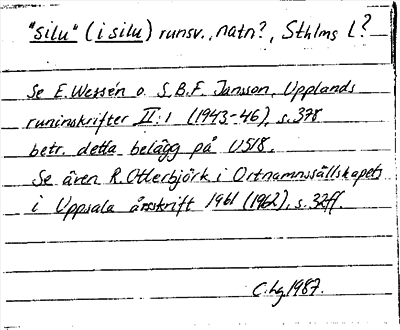 "silu" (i silu) runsv., natn?, Sthlms l?
Se E. Wessén o. S.B.F. Jansson, Upplands
runinskrifter II:1 (1943-46), s. 378
betr. detta belägg på U518.
Se även R. Otterbjörk i Ortnamnssällskapets
i Uppsala årsskrift 1961 (1962), s. 32ff.
C. Lg. 1987.